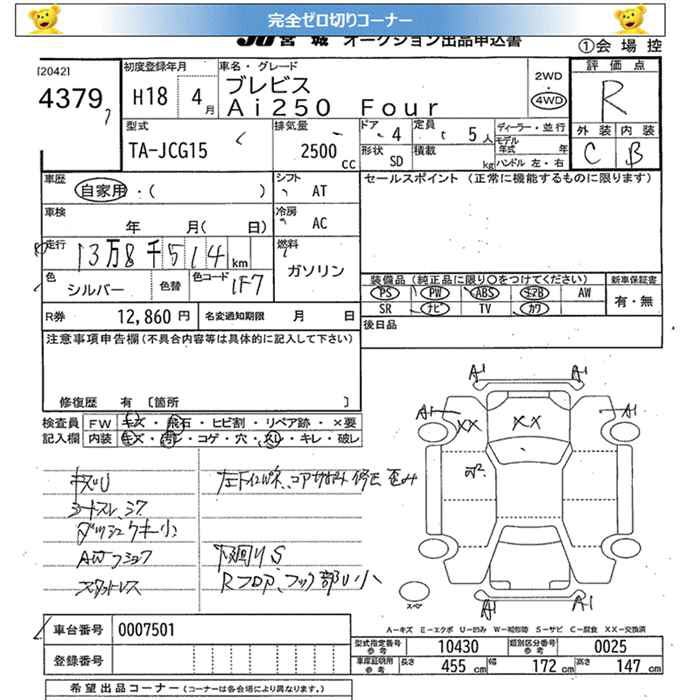 完全ゼロ切りコーナー
JU宮城 オークション出品申込書
①会場控
[2042]
4379
初度登録年月
H18 4月
車名・グレード
ブレビス
Ai250 Four
2WD
・
4WD
評価点
R
型式
TA-JCG15
排気量
2500 cc
ドア 4
定員 5人
形状 SD
積載 kg
ディーラー・並行
モデル年式 年
ハンドル 左・右
外装 内装
C B
車歴
自家用・( )
シフト AT
セールスポイント (正常に機能するものに限ります)
車検
年 月( 日)
冷房 AC
走行
13万8千514km
燃料
ガソリン
色
シルバー
色替
色コード 1F7
装備品(純正品に限り○をつけてください)
新車保証書
PS PW ABS エアB AW
有・無
SR ナビ TV カワ
R券 12,860円
名変通知期限 月 日
後日品
注意事項申告欄(不具合内容等は具体的に記入して下さい)
修復歴 有 〔箇所 〕
検査員記入欄
FW キズ・飛石・ヒビ割・リペア跡・×要
内装 キズ・汚レ・コゲ・穴・スレ・キレ・破レ
キズU
シートスレ、シワ
ダッシュクキ小
スタットレス
下廻りS
Rフロア、フック部U小
A1 A1
A1 A1
XX XX
A1 A1
スペア
A-キズ E-エクボ U-凹み W-補修跡 S-サビ C-腐食 XX-交換済
車台番号 0007501
型式指定番号 参考 10430
類別区分番号 参考 0025
登録番号
車庫証明用 参考 長さ 455cm 幅 172cm 高さ 147cm
希望出品コーナー(コーナーは各会場により異なります。)